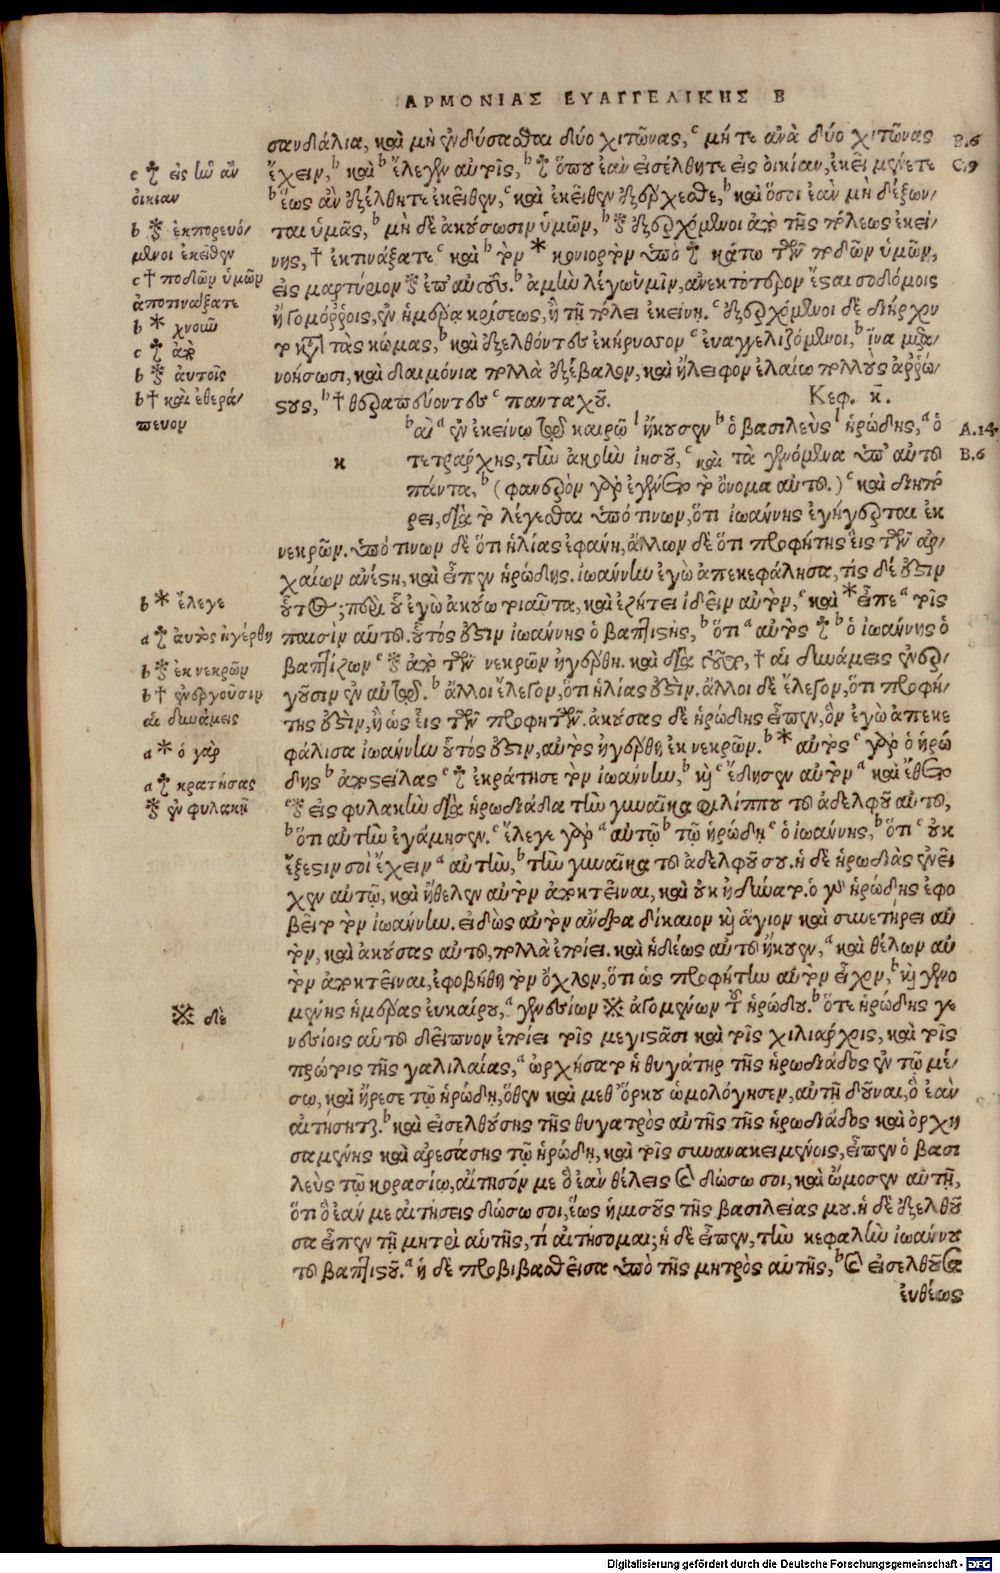 ΑΡΜΟΝΙΑΣ ΕΥΑΓΓΕΛΙΚΗΣ Β
σανδάλια, καὶ μὴ ἐνδύσασθαι δύο χιτῶνας, c μή τε ἀνὰ δύο χιτῶνας
B.6
ἔχειν, b καὶ b ἔλεγεν αὐτοῖς, b ☨ ὅπου ἐὰν εἰσέλθητε εἰς οἰκίαν, ἐκεῖ μένετε
C.9
c ☨ εἰς ἣν ἂν
οἰκίαν
b ἕως ἂν ἐξέλθητε ἐκεῖθεν, c καὶ ἐκεῖθεν ἐξέρχεσθε, b καὶ ὅσοι ἐὰν μὴ δέξων/
ται ὑμᾶς, b μὴ δὲ ἀκούσωσιν ὑμῶν, b ἐξερχόμενοι ἀπὸ τῆς πόλεως ἐκεί/
b ἐκπορευό/
μενοι ἐκεῖθεν
νης, † ἐκτινάξατε c καὶ b τὸν * κονιορτὸν ὑπὸ ☨ κάτω τῶν ποδῶν ὑμῶν,
c † ποδῶν ὑμῶν
ἀποτινάξατε
εἰς μαρτύριον ἐπ' αὐτούς. b ἀμὴν λέγω ὑμῖν, ἀνεκτότερον ἔσται σοδόμοις
ἢ γομόρροις, ἐν ἡμέρᾳ κρίσεως, ἢ τῇ πόλει ἐκείνῃ. c ἐξερχόμενοι δὲ διήρχον
b * χνοῦν
το κατὰ τὰς κώμας, b καὶ ἐξελθόντες ἐκήρυσσον c εὐαγγελιζόμενοι, b ἵνα μετα/
c ☨ ἀπὸ
νοήσωσι, καὶ δαιμόνια πολλὰ ἐξέβαλον, καὶ ἤλειφον ἐλαίῳ πολλοὺς ἀρρώ/
b αὐτοῖς
στους, b † θεραπεύοντες c πανταχοῦ. Κεφ. κ̄.
b † καὶ ἐθερά/
πευον
b αὶ a ἐν ἐκείνῳ τῷ καιρῷ l ἤκουσεν b ὁ βασιλεὺς l ἡρώδης, a ὁ
A.14
κ τετράρχης, τὴν ἀκοὴν ἰησοῦ, c καὶ τὰ γενόμενα ὑπ' αὐτοῦ
B.6
πάντα, b (φανερὸν γὰρ ἐγένετο τὸ ὄνομα αὐτοῦ.) c καὶ διηπό
ρει, διὰ τὸ λέγεσθαι ὑπό τινων, ὅτι ἰωάννης ἐγήγερται ἐκ
νεκρῶν. ὑπό τινων δὲ ὅτι ἡλίας ἐφάνη, ἄλλων δὲ ὅτι προφήτης εἷς τῶν ἀρ/
χαίων ἀνέστη, καὶ εἶπεν ἡρώδης. ἰωάννην ἐγὼ ἀπεκεφάλησα, τίς δέ ἐστιν
b * ἔλεγε
οὗτος; περὶ οὗ ἐγὼ ἀκούω τοιαῦτα, καὶ ἐζήτει ἰδεῖν αὐτὸν, c καὶ * εἶπε a τοῖς
a ☨ αὐτὸς ἠγέρθη
παισὶν αὑτοῦ. οὗτός ἐστιν ἰωάννης ὁ βαπτιστής, b ὅτι a αὐτὸς ☨ b ὁ ἰωάννης ὁ
b ἐκ νεκρῶν
βαπτίζων c ἀπὸ τῶν νεκρῶν ἠγέρθη. καὶ διὰ τοῦτο, † αἱ δυνάμεις ἐνερ/
b † ἐνεργοῦσιν
αἱ δυνάμεις
γοῦσιν ἐν αὐτῷ. b ἄλλοι ἔλεγον, ὅτι ἡλίας ἐστὶν. ἄλλοι δὲ ἔλεγον, ὅτι προφή/
της ἐστὶν, ἢ ὡς εἷς τῶν προφητῶν. ἀκούσας δὲ ἡρώδης εἶπεν, ὃν ἐγὼ ἀπεκε
φάλισα ἰωάννην οὗτός ἐστιν, αὐτὸς ἠγέρθη ἐκ νεκρῶν. b * αὐτὸς c γὰρ ὁ ἡρώ
a * ὁ γὰρ
δης b ἀποστείλας c ☨ ἐκράτησε τὸν ἰωάννην, b καὶ c ἔδησεν αὐτὸν a καὶ ἔθετο
a ☨ κρατήσας
c εἰς φυλακὴν διὰ ἡρωδιάδα τὴν γυναῖκα φιλίππου τοῦ ἀδελφοῦ αὐτοῦ,
ἐν φυλακῇ
b ὅτι αὐτὴν ἐγάμησεν. c ἔλεγε γὰρ a αὐτῷ b τῷ ἡρώδῃ c ὁ ἰωάννης, b ὅτι c οὐκ
ἔξεστιν σοὶ ἔχειν a αὐτὴν, b τὴν γυναῖκα τοῦ ἀδελφοῦ σου. ἡ δὲ ἡρωδιὰς ἐνεῖ
χεν αὐτῷ, καὶ ἤθελεν αὐτὸν ἀποκτεῖναι, καὶ οὐκ ἠδύνατο. ὁ γὰρ ἡρώδης ἐφο
βεῖτο τὸν ἰωάννην. εἰδὼς αὐτὸν ἄνδρα δίκαιον καὶ ἅγιον καὶ συνετήρει αὐ
τὸν, καὶ ἀκούσας αὐτοῦ, πολλὰ ἐποίει. καὶ ἡδέως αὐτοῦ ἤκουεν, a καὶ θέλων αὐ
τὸν ἀποκτεῖναι, ἐφοβήθη τὸν ὄχλον, ὅτι ὡς προφήτην αὐτὸν εἶχον, b καὶ γενο
μένης ἡμέρας εὐκαίρου, a γενεσίων ※ ἀγομένων τοῦ ἡρώδου. b ὅτε ἡρώδης γε
※ δὲ
νεσίοις αὑτοῦ δεῖπνον ἐποίει τοῖς μεγιστᾶσι καὶ τοῖς χιλιάρχοις, καὶ τοῖς
πρώτοις τῆς γαλιλαίας, a ὠρχήσατο ἡ θυγάτηρ τῆς ἡρωδιάδος ἐν τῷ μέ/
σῳ, καὶ ἤρεσε τῷ ἡρώδῃ, ὅθεν καὶ μεθ' ὅρκου ὡμολόγησεν, αὐτῇ δοῦναι, ὃ ἐὰν
αἰτήσηται. b καὶ εἰσελθούσης τῆς θυγατρὸς αὐτῆς τῆς ἡρωδιάδος καὶ ὀρχη
σαμένης καὶ ἀρεσάσης τῷ ἡρώδῃ, καὶ τοῖς συνανακειμένοις, εἶπεν ὁ βασι
λεὺς τῷ κορασίῳ, αἴτησόν με ὃ ἐὰν θέλεις καὶ δώσω σοι, καὶ ὤμοσεν αὐτῇ,
ὅτι ὃ ἐάν με αἰτήσεις δώσω σοι, ἕως ἡμισοῦς τῆς βασιλείας μου. ἡ δὲ ἐξελθοῦ
σα εἶπεν τῇ μητρὶ αὑτῆς, τί αἰτήσομαι; ἡ δὲ εἶπεν, τὴν κεφαλὴν ἰωάννου
τοῦ βαπτιστοῦ. a ἡ δὲ προβιβασθεῖσα ὑπὸ τῆς μητρὸς αὑτῆς, b καὶ εἰσελθοῦσα
εὐθέως
Digitalisierung gefördert durch die Deutsche Forschungsgemeinschaft - DFG